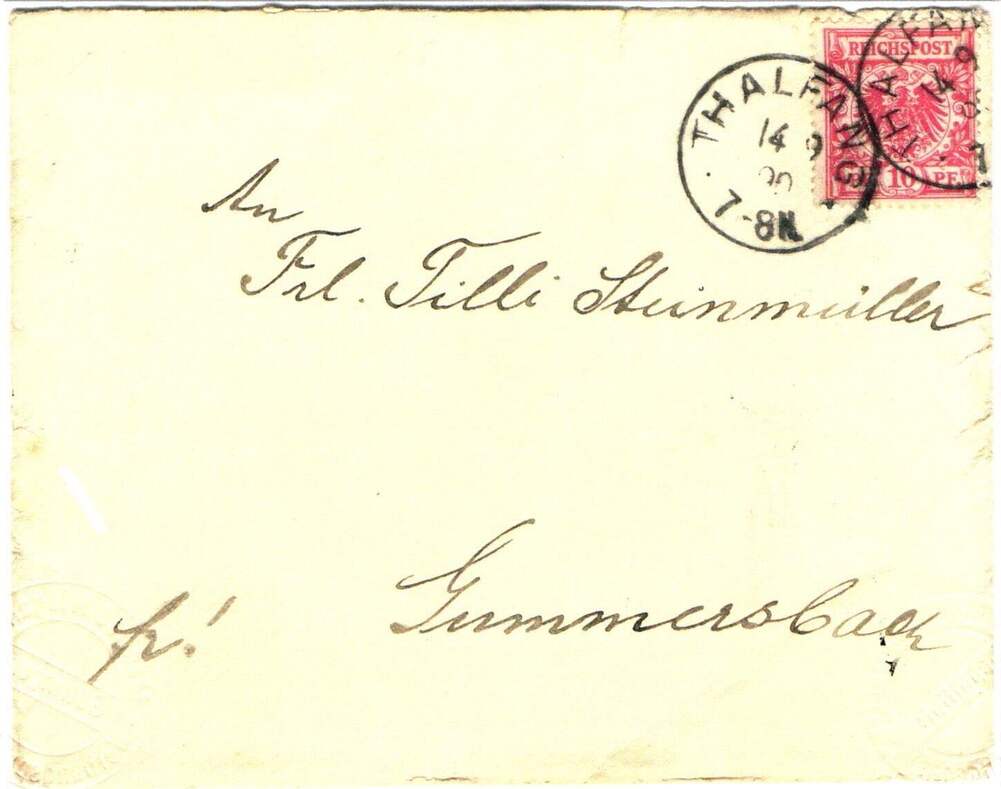 THALFANG
14 9
90
7-8N
REICHSPOST
10 PF
THALFAN
14 9
An
Frl. Tilli Steinmüller
Gummersbach
fr!